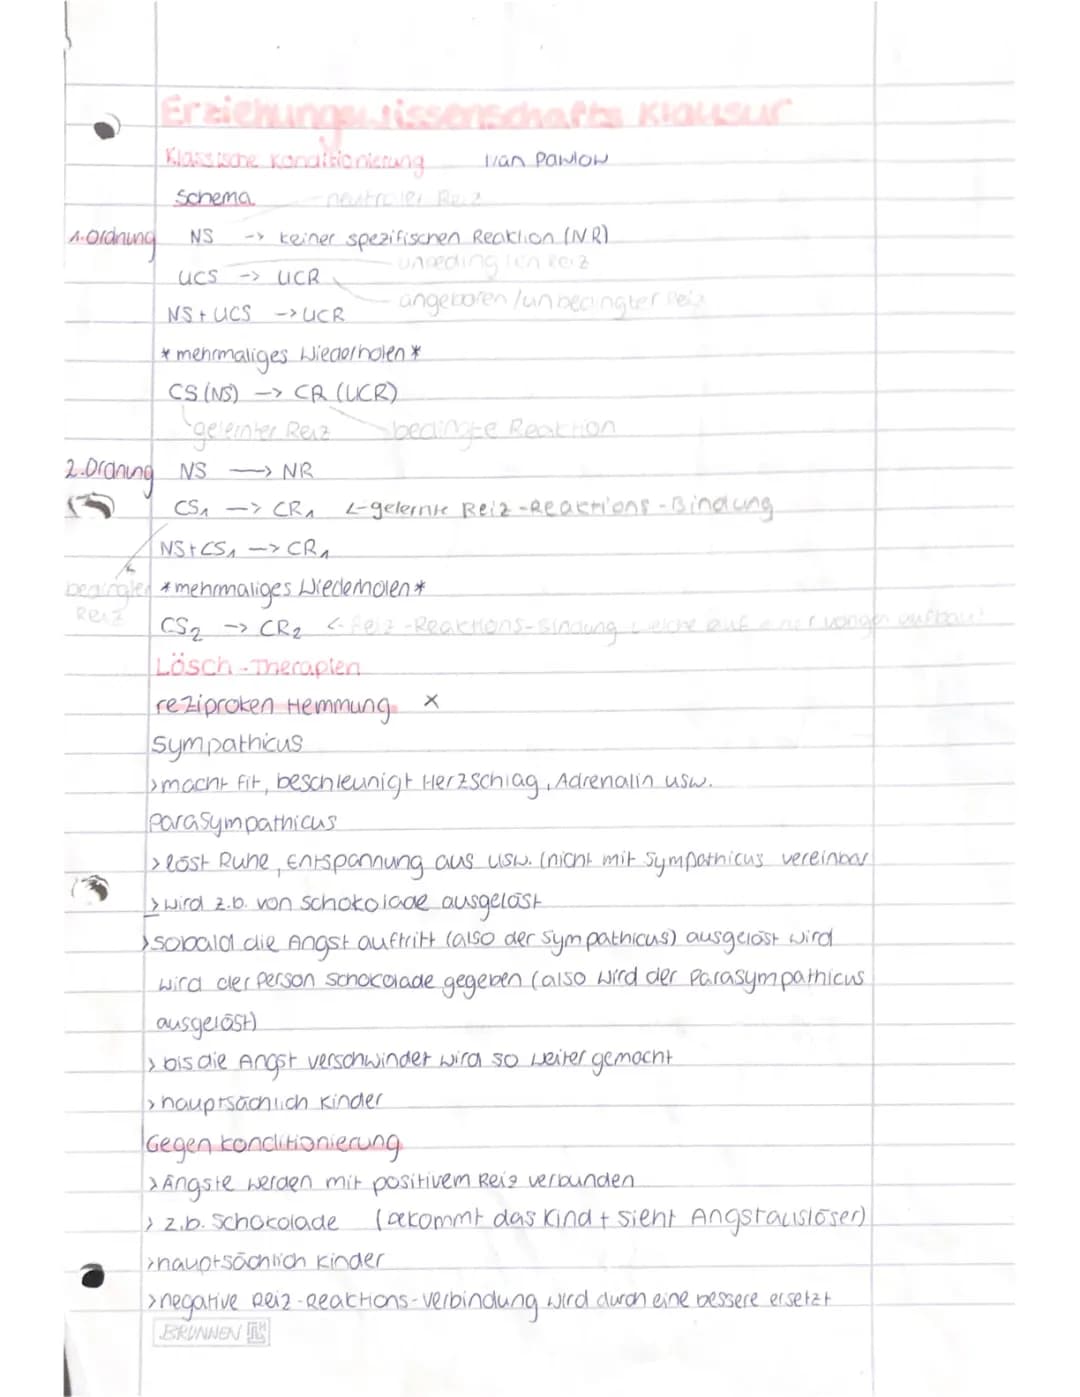 Erziehungswissenschafts Klausur
Klassische Konditionierung Ivan Pawlow
Schema neutraler Reiz
1.Ordnung NS -> keiner spezifischen Reaktion (NR)
unbedingten Reiz
UCS -> UCR
angeboren/unbedingter Reiz
NS + UCS -> UCR
* mehrmaliges Wiederholen *
CS (NS) -> CR (UCR)
gelernter Reiz bedingte Reaktion
2.Ordnung NS -> NR
CS1 -> CR1 <-gelernte Reiz-Reaktions-Bindung
NS+CS1 -> CR1
bedingter *mehrmaliges Wiederholen*
Reiz
CS2 -> CR2 <-Reiz-Reaktions-Bindung welche auf einer vorigen aufbaut
Lösch-Therapien
reziproken Hemmung x
Sympathicus
>macht fit, beschleunigt Herzschlag, Adrenalin usw.
Parasympathicus
>löst Ruhe, Entspannung aus usw. (nicht mit Sympathicus vereinbar
>wird z.b. von Schokolade ausgelöst
>sobald die Angst auftritt (also der Sympathicus) ausgelöst wird
wird der Person Schokolade gegeben (also wird der Parasympathicus
ausgelöst)
>bis die Angst verschwindet wird so weiter gemacht
>hauptsächlich Kinder
Gegenkonditionierung
>Ängste werden mit positivem Reiz verbunden
> z.b. Schokolade (bekommt das Kind + sieht Angstauslöser)
>hauptsächlich Kinder
>negative Reiz-Reaktions-Verbindung wird durch eine bessere ersetzt
BRUNNEN